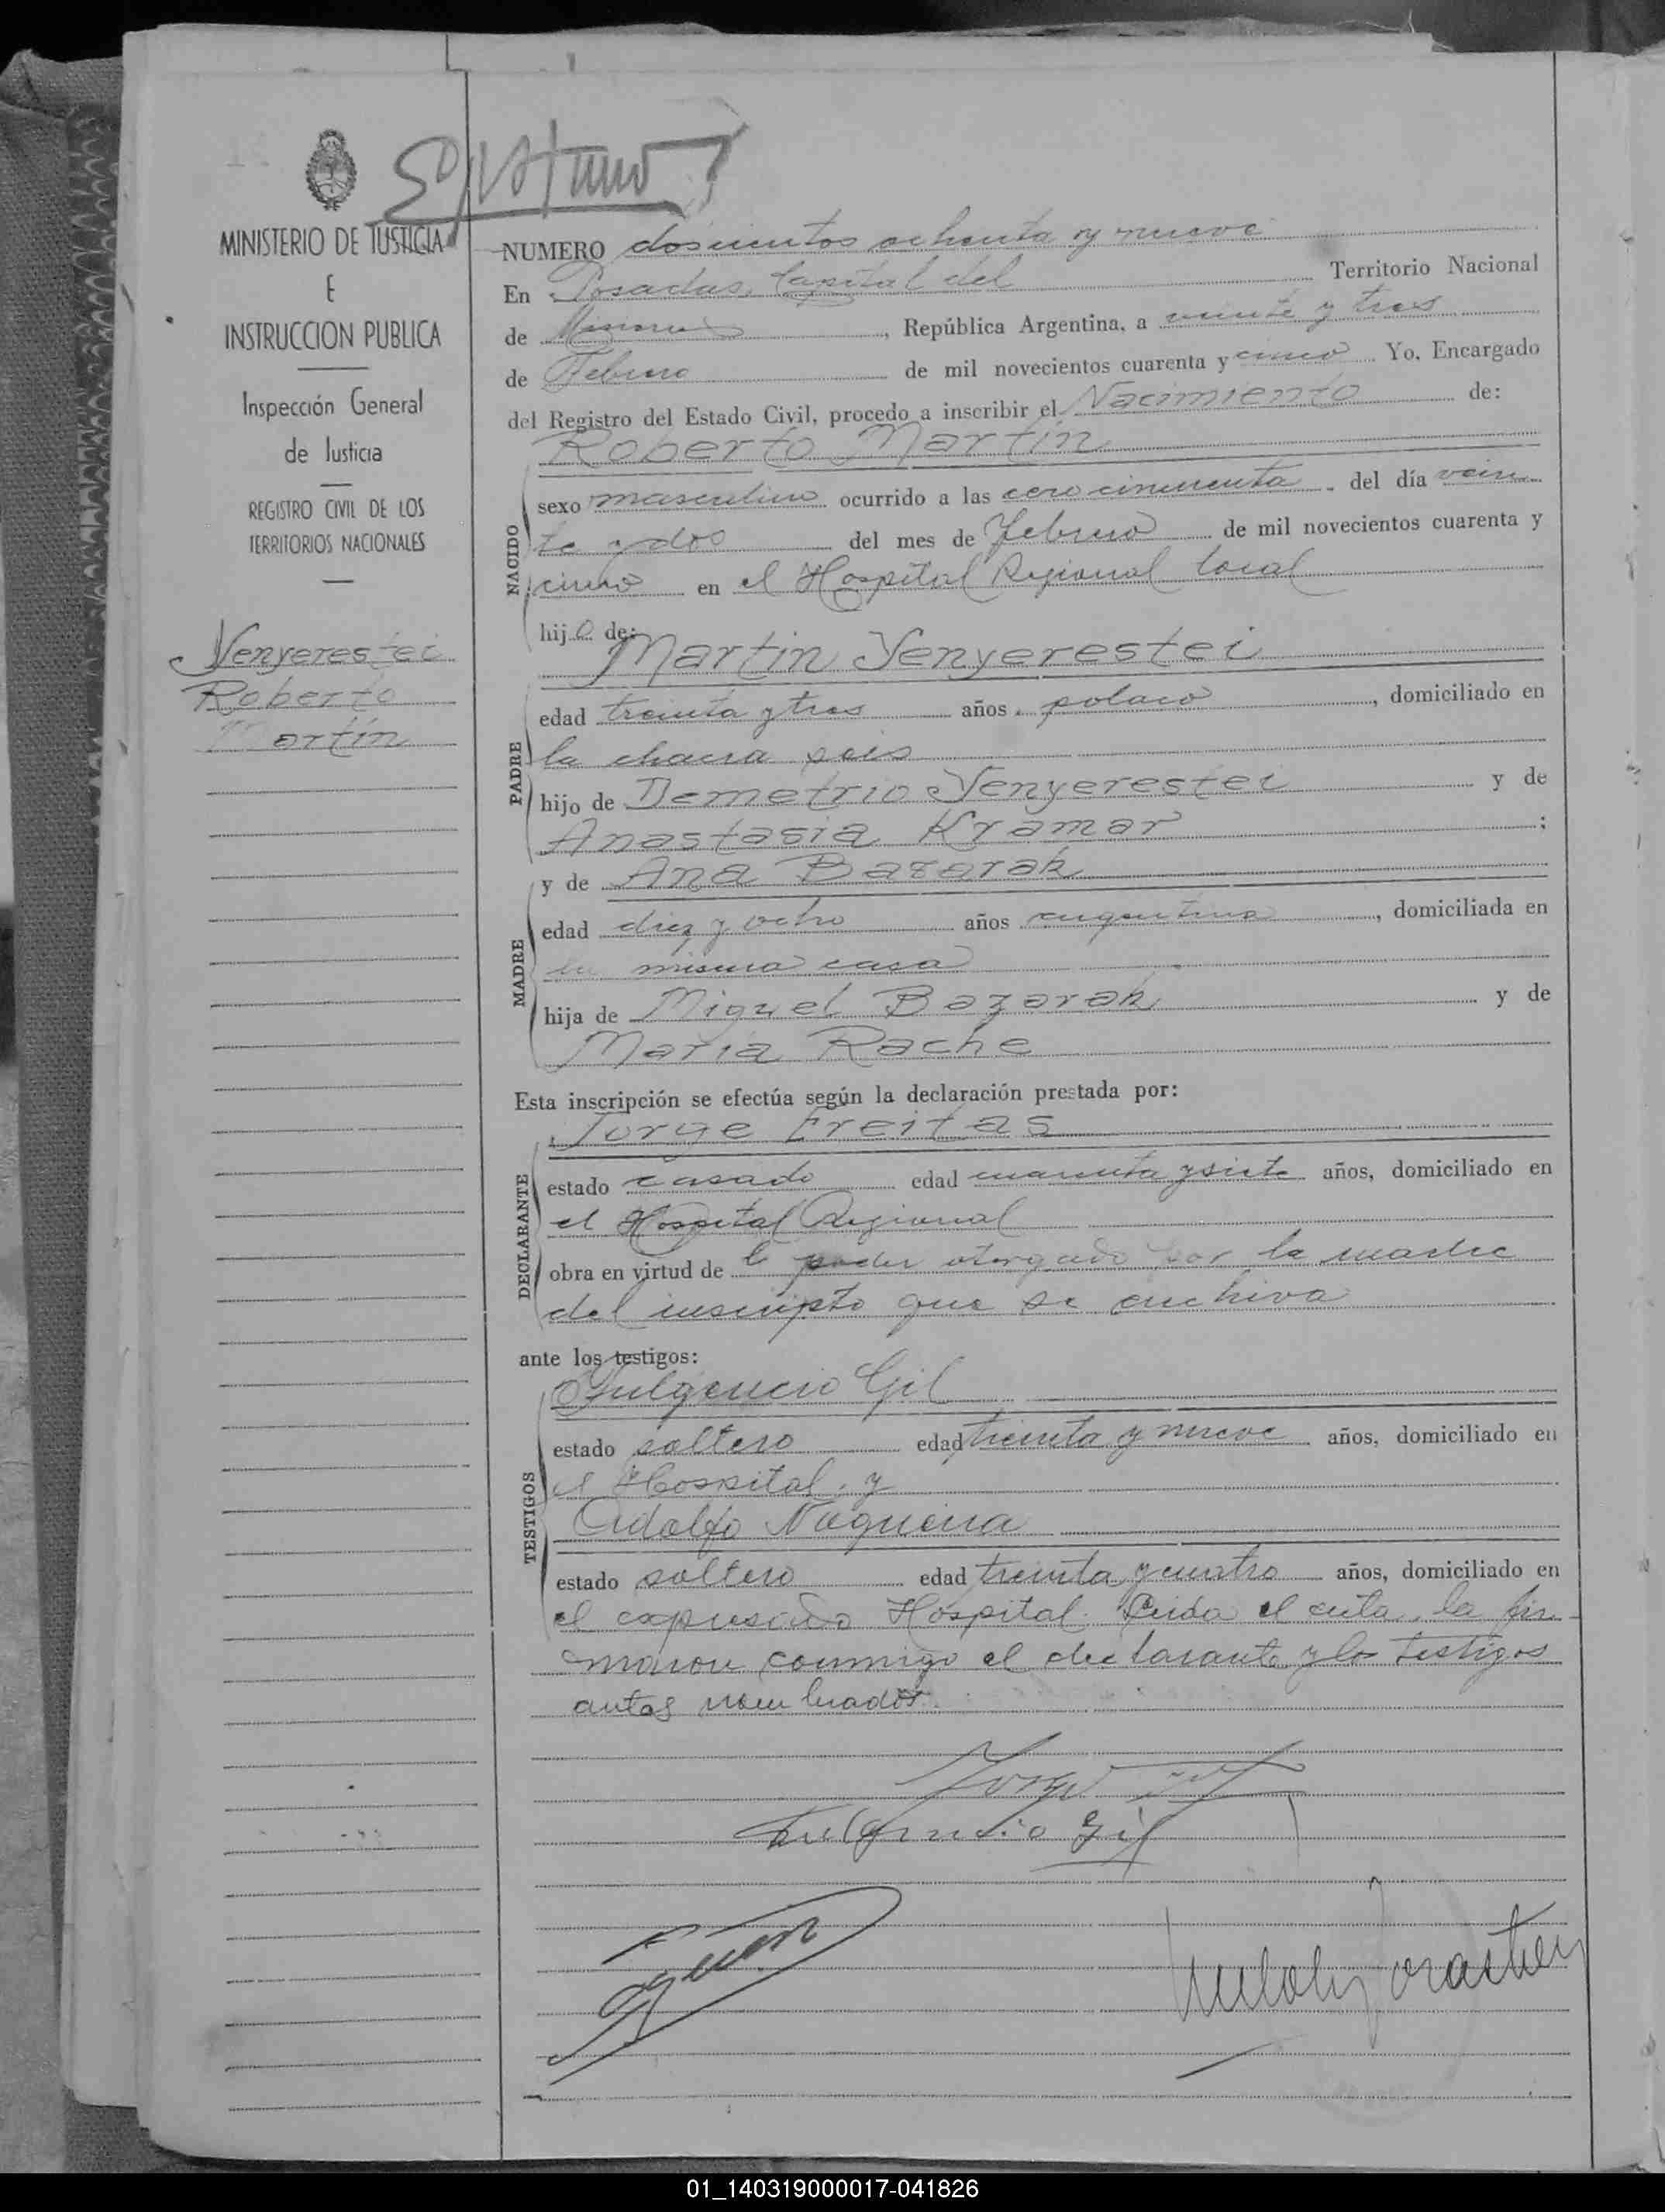 MINISTERIO DE JUSTICIA
E
INSTRUCCION PUBLICA
Inspección General
de Justicia
REGISTRO CIVIL DE LOS
TERRITORIOS NACIONALES
Yenyerestei
Roberto
Martin
NUMERO doscientos ochenta y nueve
En Posadas, Capital del Territorio Nacional
de Misiones, República Argentina, a veinte y tres
de Febrero de mil novecientos cuarenta y cinco Yo, Encargado
del Registro del Estado Civil, procedo a inscribir el Nacimiento de:
Roberto Martin
NACIDO
sexo masculino ocurrido a las cero cincuenta del día vein
te y dos del mes de Febrero de mil novecientos cuarenta y
cinco en el Hospital Regional local
hijo de:
Martin Yenyerestei
PADRE
edad treinta y tres años, polaco, domiciliado en
la chacra seis
hijo de Demetrio Yenyerestei y de
Anastasia Kramar;
y de Ana Bazarak
MADRE
edad diez y ocho años argentina, domiciliada en
la misma casa
hija de Miguel Bazarak y de
Maria Rache
Esta inscripción se efectúa según la declaración prestada por:
Jorge Freitas
DECLARANTE
estado casado edad cuarenta y siete años, domiciliado en
el Hospital Regional
obra en virtud de poder otorgado por la madre
del inscripto que se archiva
ante los testigos:
Fulgencio Gil
TESTIGOS
estado soltero edad treinta y nueve años, domiciliado en
el Hospital, y
Adolfo Nogueira
estado soltero edad treinta y cuatro años, domiciliado en
el expresado Hospital. Leida el acta, la fir
maron conmigo el declarante y los testigos
antes nombrados.
Fulgencio Gil
01_140319000017-041826